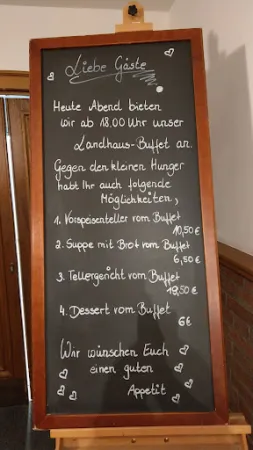 Liebe Gäste
Heute Abend bieten
wir ab 18.00 Uhr unser
Landhaus-Buffet an.
Gegen den kleinen Hunger
habt Ihr auch folgende
Möglichkeiten,
1. Vorspeisenteller vom Buffet
10,50€
2. Suppe mit Brot vom Buffet
6,50€
3. Tellergericht vom Buffet
19,50€
4. Dessert vom Buffet
6€
Wir wünschen Euch
einen guten
Appetit